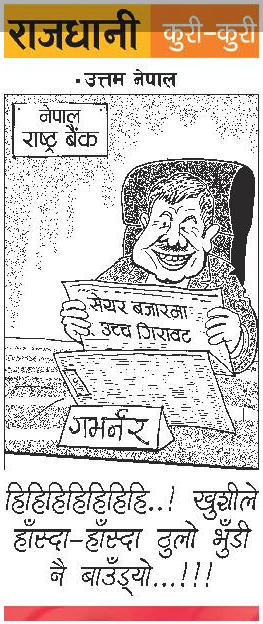 राजधानी कुरी-कुरी
• उत्तम नेपाल
नेपाल
राष्ट्र बैंक
सेयर बजारमा
उच्च गिरावट
गभर्नर
हिहिहिहिहिहिहि..! खुशीले
हाँस्दा-हाँस्दा ठुलो भुँडी
नै बाउँड्यो...!!!